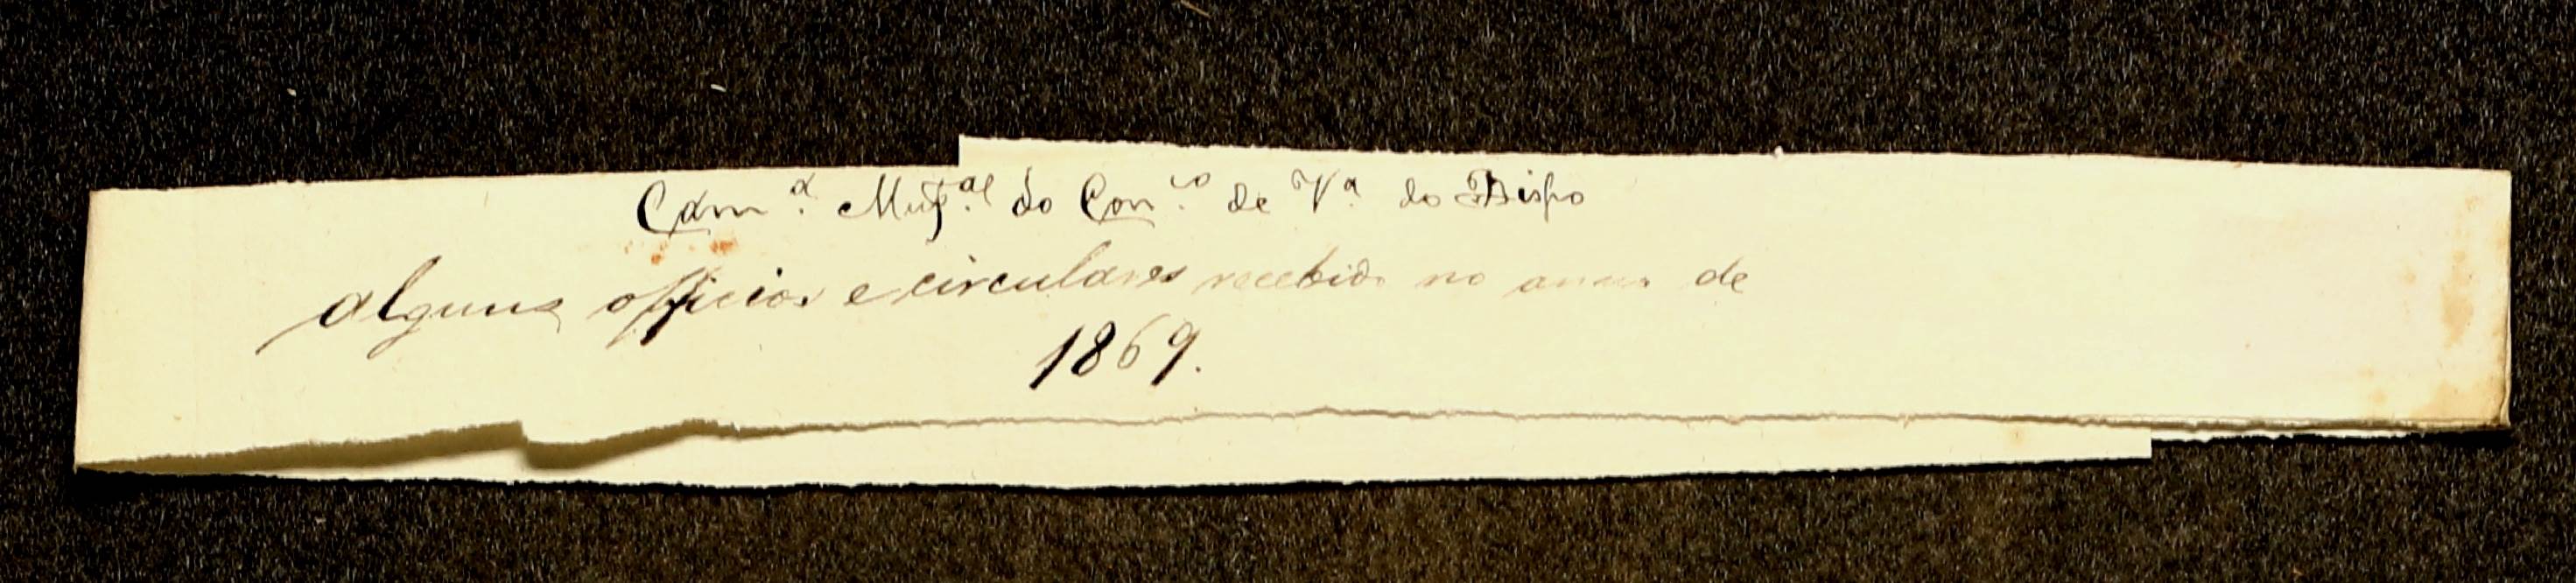 Camª. Mupal. do Conco. de Vª. do Bispo
Alguns officios e circulares recebidos no anno de
1869.